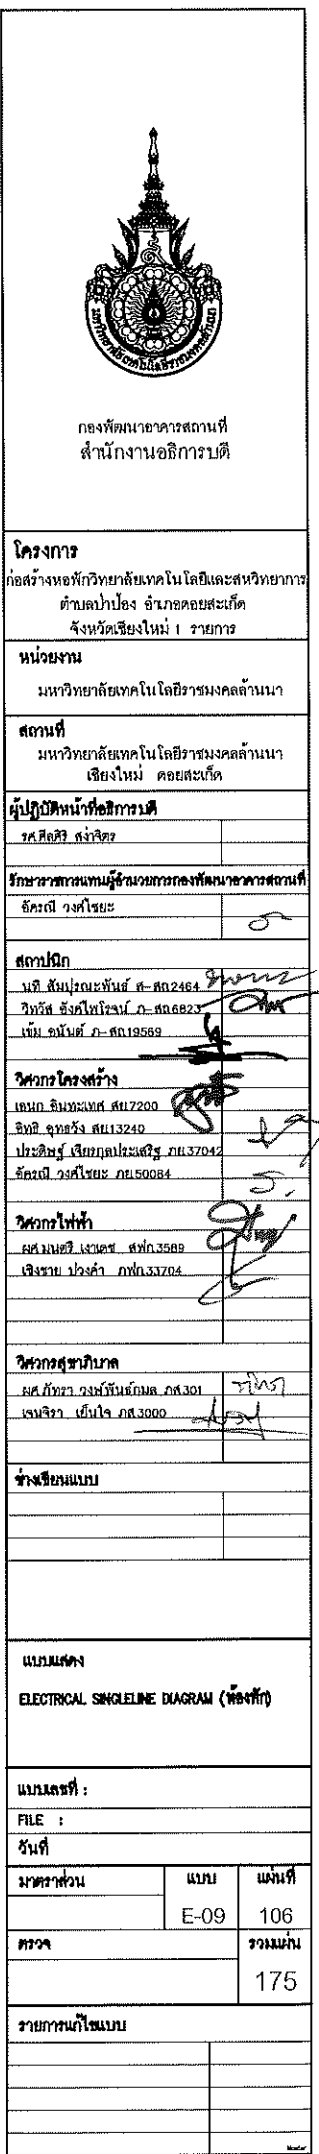 มหาวิทยาลัยเทคโนโลยีราชมงคลล้านนา
กองพัฒนาอาคารสถานที่
สำนักงานอธิการบดี
โครงการ
ก่อสร้างหอพักวิทยาลัยเทคโนโลยีและสหวิทยาการ
ตำบลป่าป้อง อำเภอดอยสะเก็ด
จังหวัดเชียงใหม่ 1 รายการ
หน่วยงาน
มหาวิทยาลัยเทคโนโลยีราชมงคลล้านนา
สถานที่
มหาวิทยาลัยเทคโนโลยีราชมงคลล้านนา
เชียงใหม่ ดอยสะเก็ด
ผู้ปฏิบัติหน้าที่อธิการบดี
รศ.ศีลศิริ สง่าจิตร
รักษาราชการแทนผู้อำนวยการกองพัฒนาอาคารสถานที่
อัครณี วงศ์ไชยะ
สถาปนิก
นที สัมปุรณะพันธ์ ส-สถ2464
วิทวัส อังศ์ไพโรจน์ ภ-สถ6823
เข้ม อนันต์ ภ-สถ19569
วิศวกรโครงสร้าง
เอนก ชินทะเทศ สย7200
อิทธิ อุทธวัง สย13240
ประดิษฐ์ เจียรกุลประเสริฐ ภย37042
อัครณี วงศ์ไชยะ ภย50084
วิศวกรไฟฟ้า
ผศ.มนตรี เงาเดช สฟก.3589
เชิงชาย ปวงคำ ภฟก.33704
วิศวกรสุขาภิบาล
ผศ.ภัทรา วงษ์พันธ์กมล ภส.301
เจนจิรา เย็นใจ ภส.3000
ช่างเขียนแบบ
แบบแสดง
ELECTRICAL SINGLELINE DIAGRAM (ห้องพัก)
แบบเลขที่ :
FILE :
วันที่
มาตราส่วน แบบ แผ่นที่
E-09 106
ตรวจ รวมแผ่น
175
รายการแก้ไขแบบ